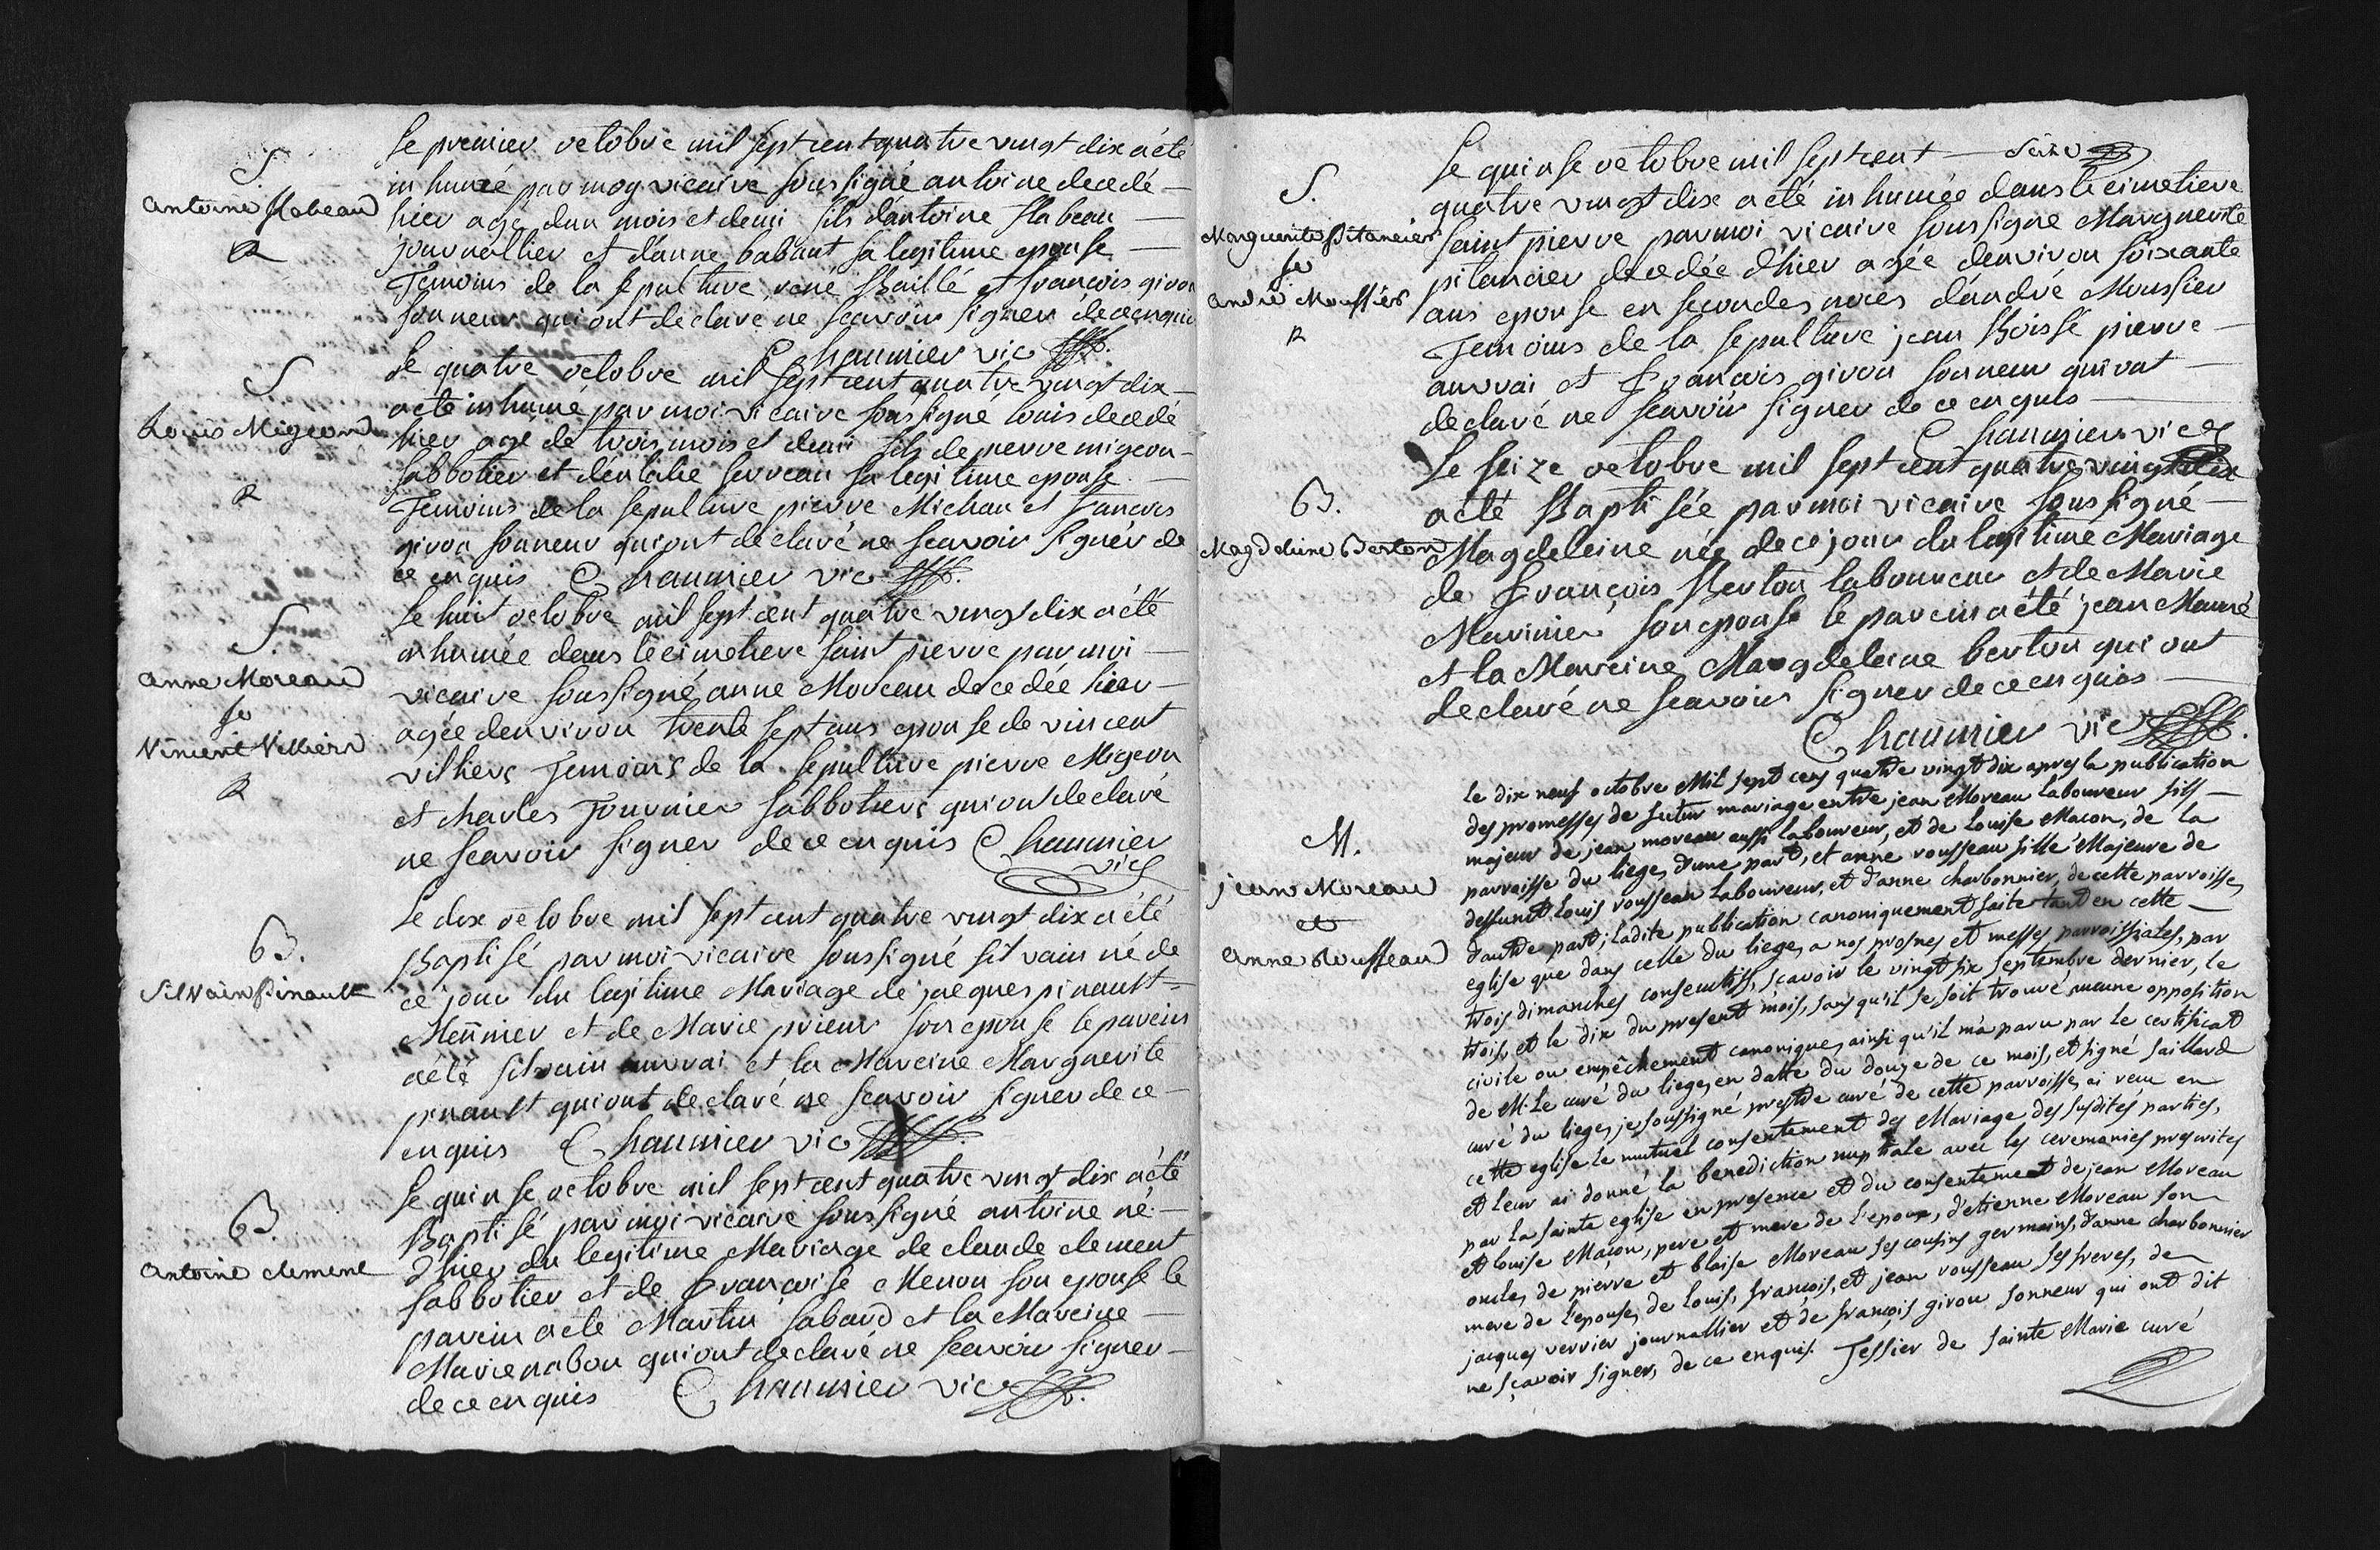 S
antoine flabeau
R
Le premier octobre mil sept cent quatre vingt dix a été
inhumé par moy vicaire soussigné antoine decedé
hier agé d'un mois et demi fils d'antoine flabeau
journallier et d'anne babaut sa legitime epouse
Temoins de la sepulture, rené Baillé et françois giron
sonneur qui ont declaré ne scavoir signer de ce enquis
Chaumier vic
S
Louis Migeon
R
Le quatre octobre mil sept cent quatre vingt dix
a été inhumé par moi vicaire soussigné louis decedé
hier agé de trois mois et demi fils de pierre migeon
sabbotier et d'eulalie serveau sa legitime epouse
Temoins de la sepulture pierre Michau et francois
giron sonneur qui ont declaré ne scavoir signer de
ce enquis Chaumier vic
S.
anne Moreau
fe
Vincent Villiers
R
Le huit octobre mil sept cent quatre vingt dix a été
inhumée dans le cimetiere saint pierre par moi
vicaire soussigné anne Moreau decedée hier
agée d'environ trente sept ans epouse de vincent
villiers Temoins de la sepulture pierre Migeon
et charles Fournier sabbotiers qui ont declaré
ne scavoir signer de ce enquis Chaumier
vic
B.
Silvain Pinault
Le dix octobre mil sept cent quatre vingt dix a été
Baptisé par moi vicaire soussigné silvain né de
ce jour du legitime Mariage de jacques pinault
Meunier et de Marie prieur son epouse le parein
a été silvain auvrai et la Mareine Marguerite
pinault qui ont declaré ne scavoir signer de ce
enquis Chaumier vic
B.
antoine clement
Le quinse octobre mil sept cent quatre vingt dix a été
Baptisé par moi vicaire soussigné antoine né
d'hier du legitime Mariage de claude clement
sabbotier et de Françoise Menou son epouse le
parein a été Martin sabard et la Mareine
Marie nabon qui ont declaré ne scavoir signer
de ce enquis Chaumier vic
S.
Marguerite Pitancier
fe
andré Moussier
R
Le quinse octobre mil sept cent — seize
quatre vingt dix a été inhumée dans le cimetiere
saint pierre par moi vicaire soussigné Marguerite
pitancier decedée d'hier agée d'environ soixante
ans epouse en secondes noces d'andré Moussier
Temoins de la sepulture jean Boissé pierre
auvrai et François giron sonneur qui ont
declaré ne scavoir signer de ce enquis
Chaumier vic
B.
Magdeleine Berton
Le seize octobre mil sept cent quatre vingt dix
a été Baptisée par moi vicaire soussigné
Magdeleine née de ce jour du legitime Mariage
de François Berton laboureur et de Marie
Marinier son epouse le parein a été jean Mauré
et la Mareine Magdeleine berton qui ont
declaré ne scavoir signer de ce enquis
Chaumier vic
M.
jean Moreau
et
anne Rousseau
Le dix neuf octobre Mil sept cens quatre vingt dix apres la publication
des promesses de futur mariage entre jean Moreau Laboureur fils
majeur de jean moreau aussi laboureur, et de Louise Macon, de la
parroisse du liege, d'une part, et anne rousseau fille Majeure de
deffunct Louis rousseau Laboureur, et d'anne charbonnier, de cette parroisse,
d'autre part; Ladite publication canoniquement faite tant en cette
eglise que dans celle du liege, a nos prosnes et messes parroissiales, par
trois dimanches consecutifs, sçavoir le vingt six septembre dernier, le
trois, et le dix du present mois, sans qu'il se soit trouvé aucune opposition
civile ou empêchement canonique, ainsi qu'il m'a paru par le certificat
de M. Le curé du liege, en datte du douze de ce mois, et signé faillard
curé du liege, je soussigné prestre curé de cette parroisse, ai recu en
cette eglise le mutuel consentement des Mariage des susdites parties,
et leur ai donné la benediction nuptiale avec les ceremonies prescrites
par la sainte eglise en presence et du consentement de jean Moreau
et louise Maçon, pere et mere de l'epoux, d'etienne Moreau son
oncle, de pierre et blaise Moreau ses cousins germains, d'anne charbonnier
mere de l'epouse, de louis, françois, et jean rousseau ses freres, de
jacques verrier journallier et de françois giron sonneur qui ont dit
ne sçavoir signer, de ce enquis. Tessier de sainte Marie curé